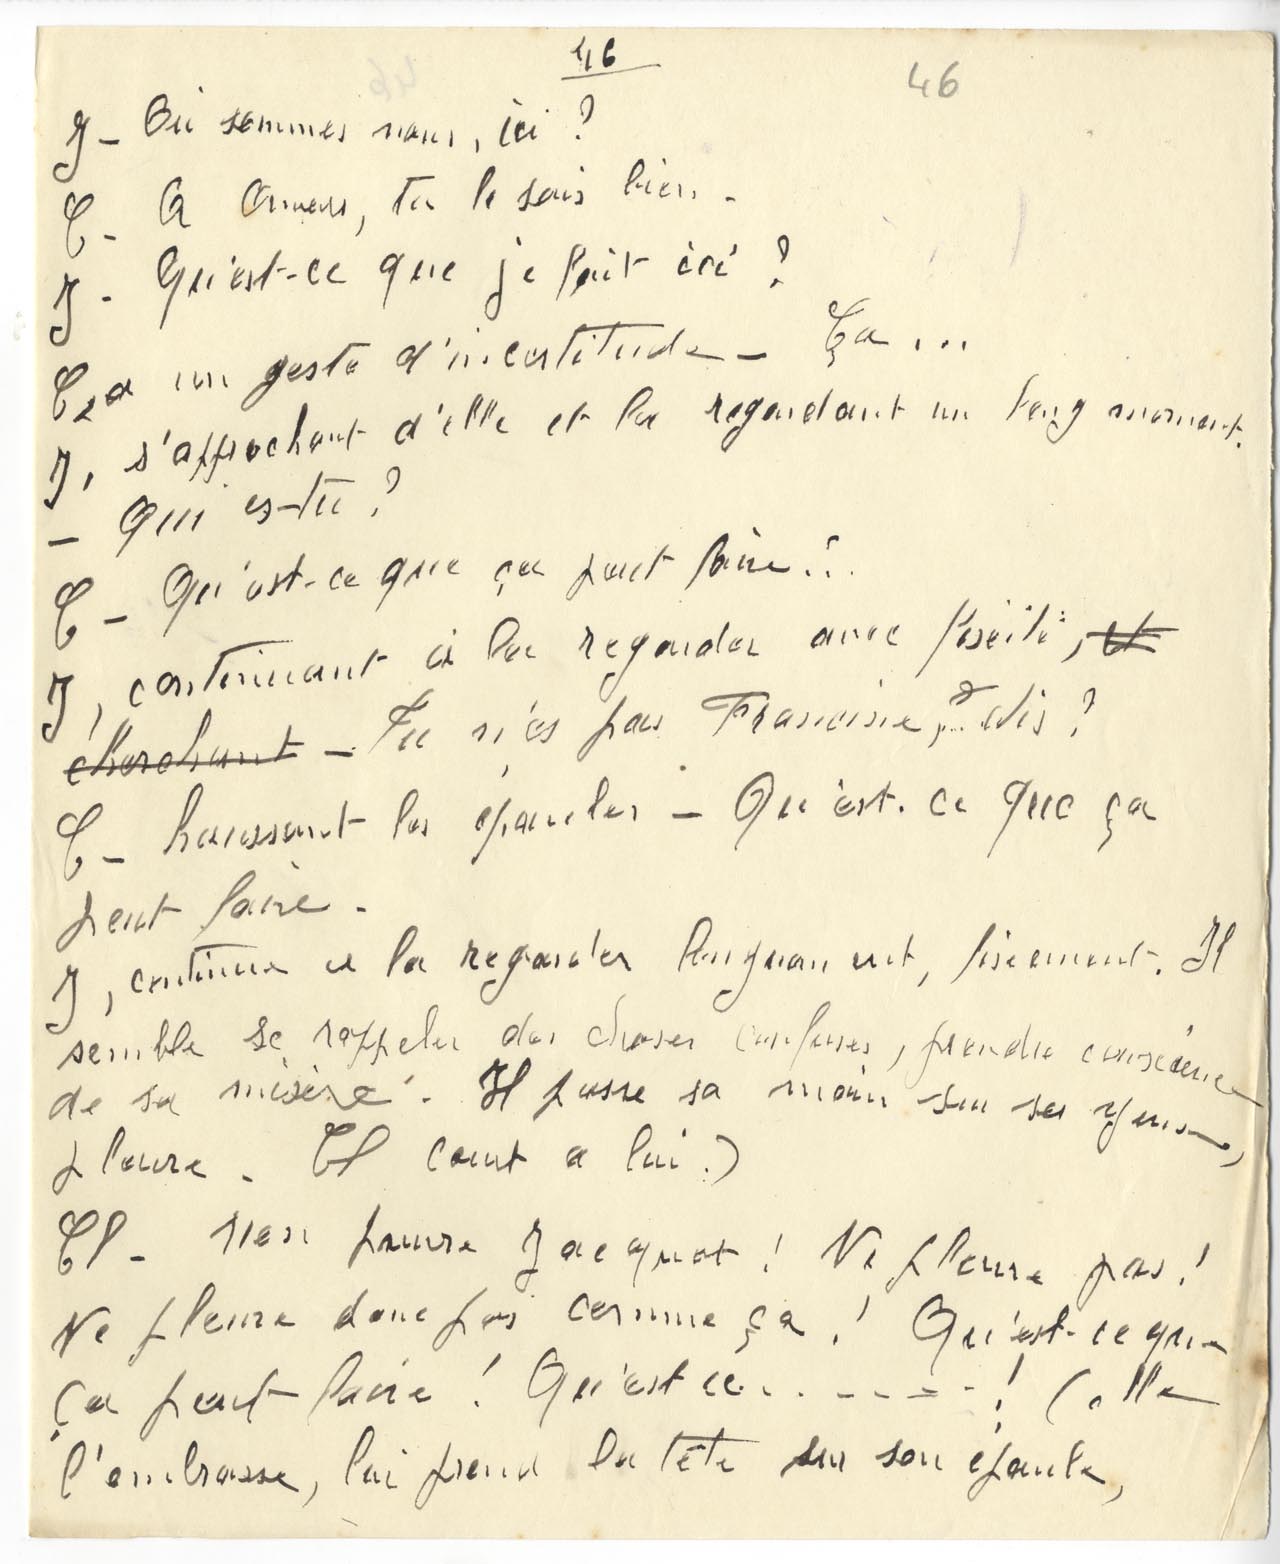 46 46
J - Où sommes nous, ici ?
C - A Anvers, tu le sais bien -
J - Qu'est-ce que je fait ici ?
C, a un geste d'incertitude - Ça ...
J, s'approchant d'elle et la regardant un long moment.
- Qui es-tu ?
C - Qu'est-ce que ça peut faire...
J, continuant à la regarder avec fixité, et
cherchant - Tu n'es pas Francine, ... dis ?
C - haussant les épaules - Qu'est-ce que ça
peut faire -
J, continue à la regarder longuement, fixement. Il
semble se rappeler des choses confuses, prendre conscience
de sa misère. Il passe sa main sur ses yeux,
pleure - Cl court a lui.)
Cl - Mon pauvre Jacquot ! Ne pleure pas !
Ne pleure donc pas comme ça ! Qu'est-ce que
ça peut faire ! Qu'est ce . . - - - - ! (elle
l'embrasse, lui prend la tête sur son épaule,